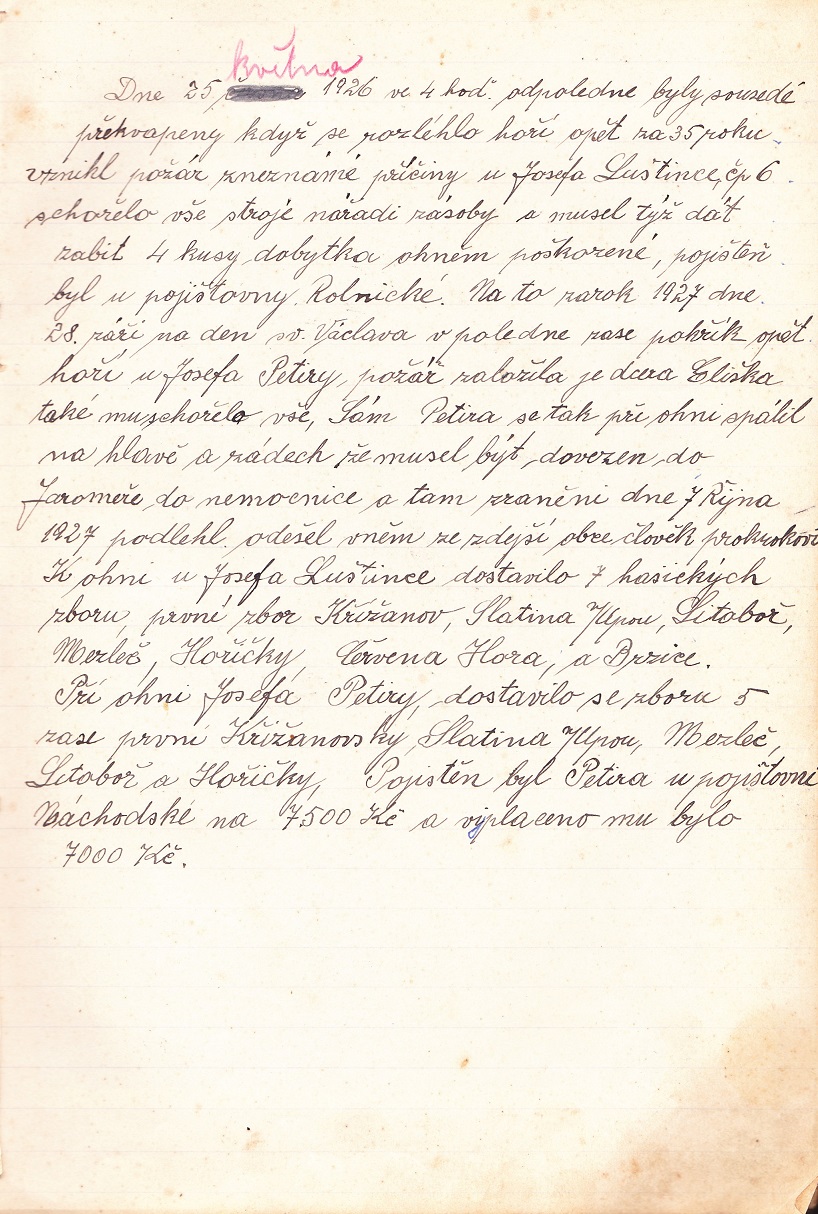 května
Dne 25 1926 ve 4 hod. odpoledne byly sousedé
překvapeny když se rozléhlo hoří opět za 35 roku
vznikl požár zneznámé příčiny u Josefa Luštince, čp 6
schořelo vše stroje nářadi zásoby a musel týž dát
zabit 4 kusy dobytka ohněm poškozené, pojištěn
byl u pojišťovny Rolnické. Na to zarok 1927 dne
28. září na den sv. Václava v poledne zase pokřik opět
hoří u Josefa Petiry, požář založila je dcera Eliška
také muschořelo vše, Sám Petira se tak při ohni spálil
na hlavě a zádech že musel být dovezen do
Jaroměře do nemocnice a tam zraněni dne 7 Října
1927 podlehl odešel vněm ze zdejší obce člověk
K ohni u Josefa Luštince dostavilo 7 hasických
zboru, první zbor Křížanov, Slatina n/Upou, Litoboř,
Mezleč, Hořičky, Červena Hora, a Brzice.
Při ohni Josefa Petiry, dostavilo se zboru 5
zase první Křížanovsky, Slatina n/Upou, Mezleč,
Litoboř a Hořičky, Pojistěn byl Petira u pojišťovni
Náchodské na 7.500 Kč a vyplaceno mu bylo
7000 Kč.